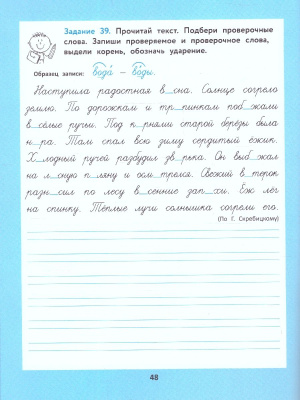 Задание 39. Прочитай текст. Подбери проверочные
слова. Запиши проверяемое и проверочное слова,
выдели корень, обозначь ударение.
Образец записи: вода́ – во́ды.
Наступила радостная в_сна. Солнце согрело
землю. По дорожкам и тр_пинкам поб_жали
в_сёлые ручьи. Под к_рнями старой берёзы была
н_ра. Там спал всю зиму сердитый ёжик.
Х_лодный ручей разбудил зв_рька. Он выб_жал
на л_сную п_ляну и осм_трелся. Свежий в_терок
разн_сил по лесу в_сенние зап_хи. Ёж лёг
на спинку. Тёплые лучи солнышка согрели его.
(По Г. Скребицкому)
48